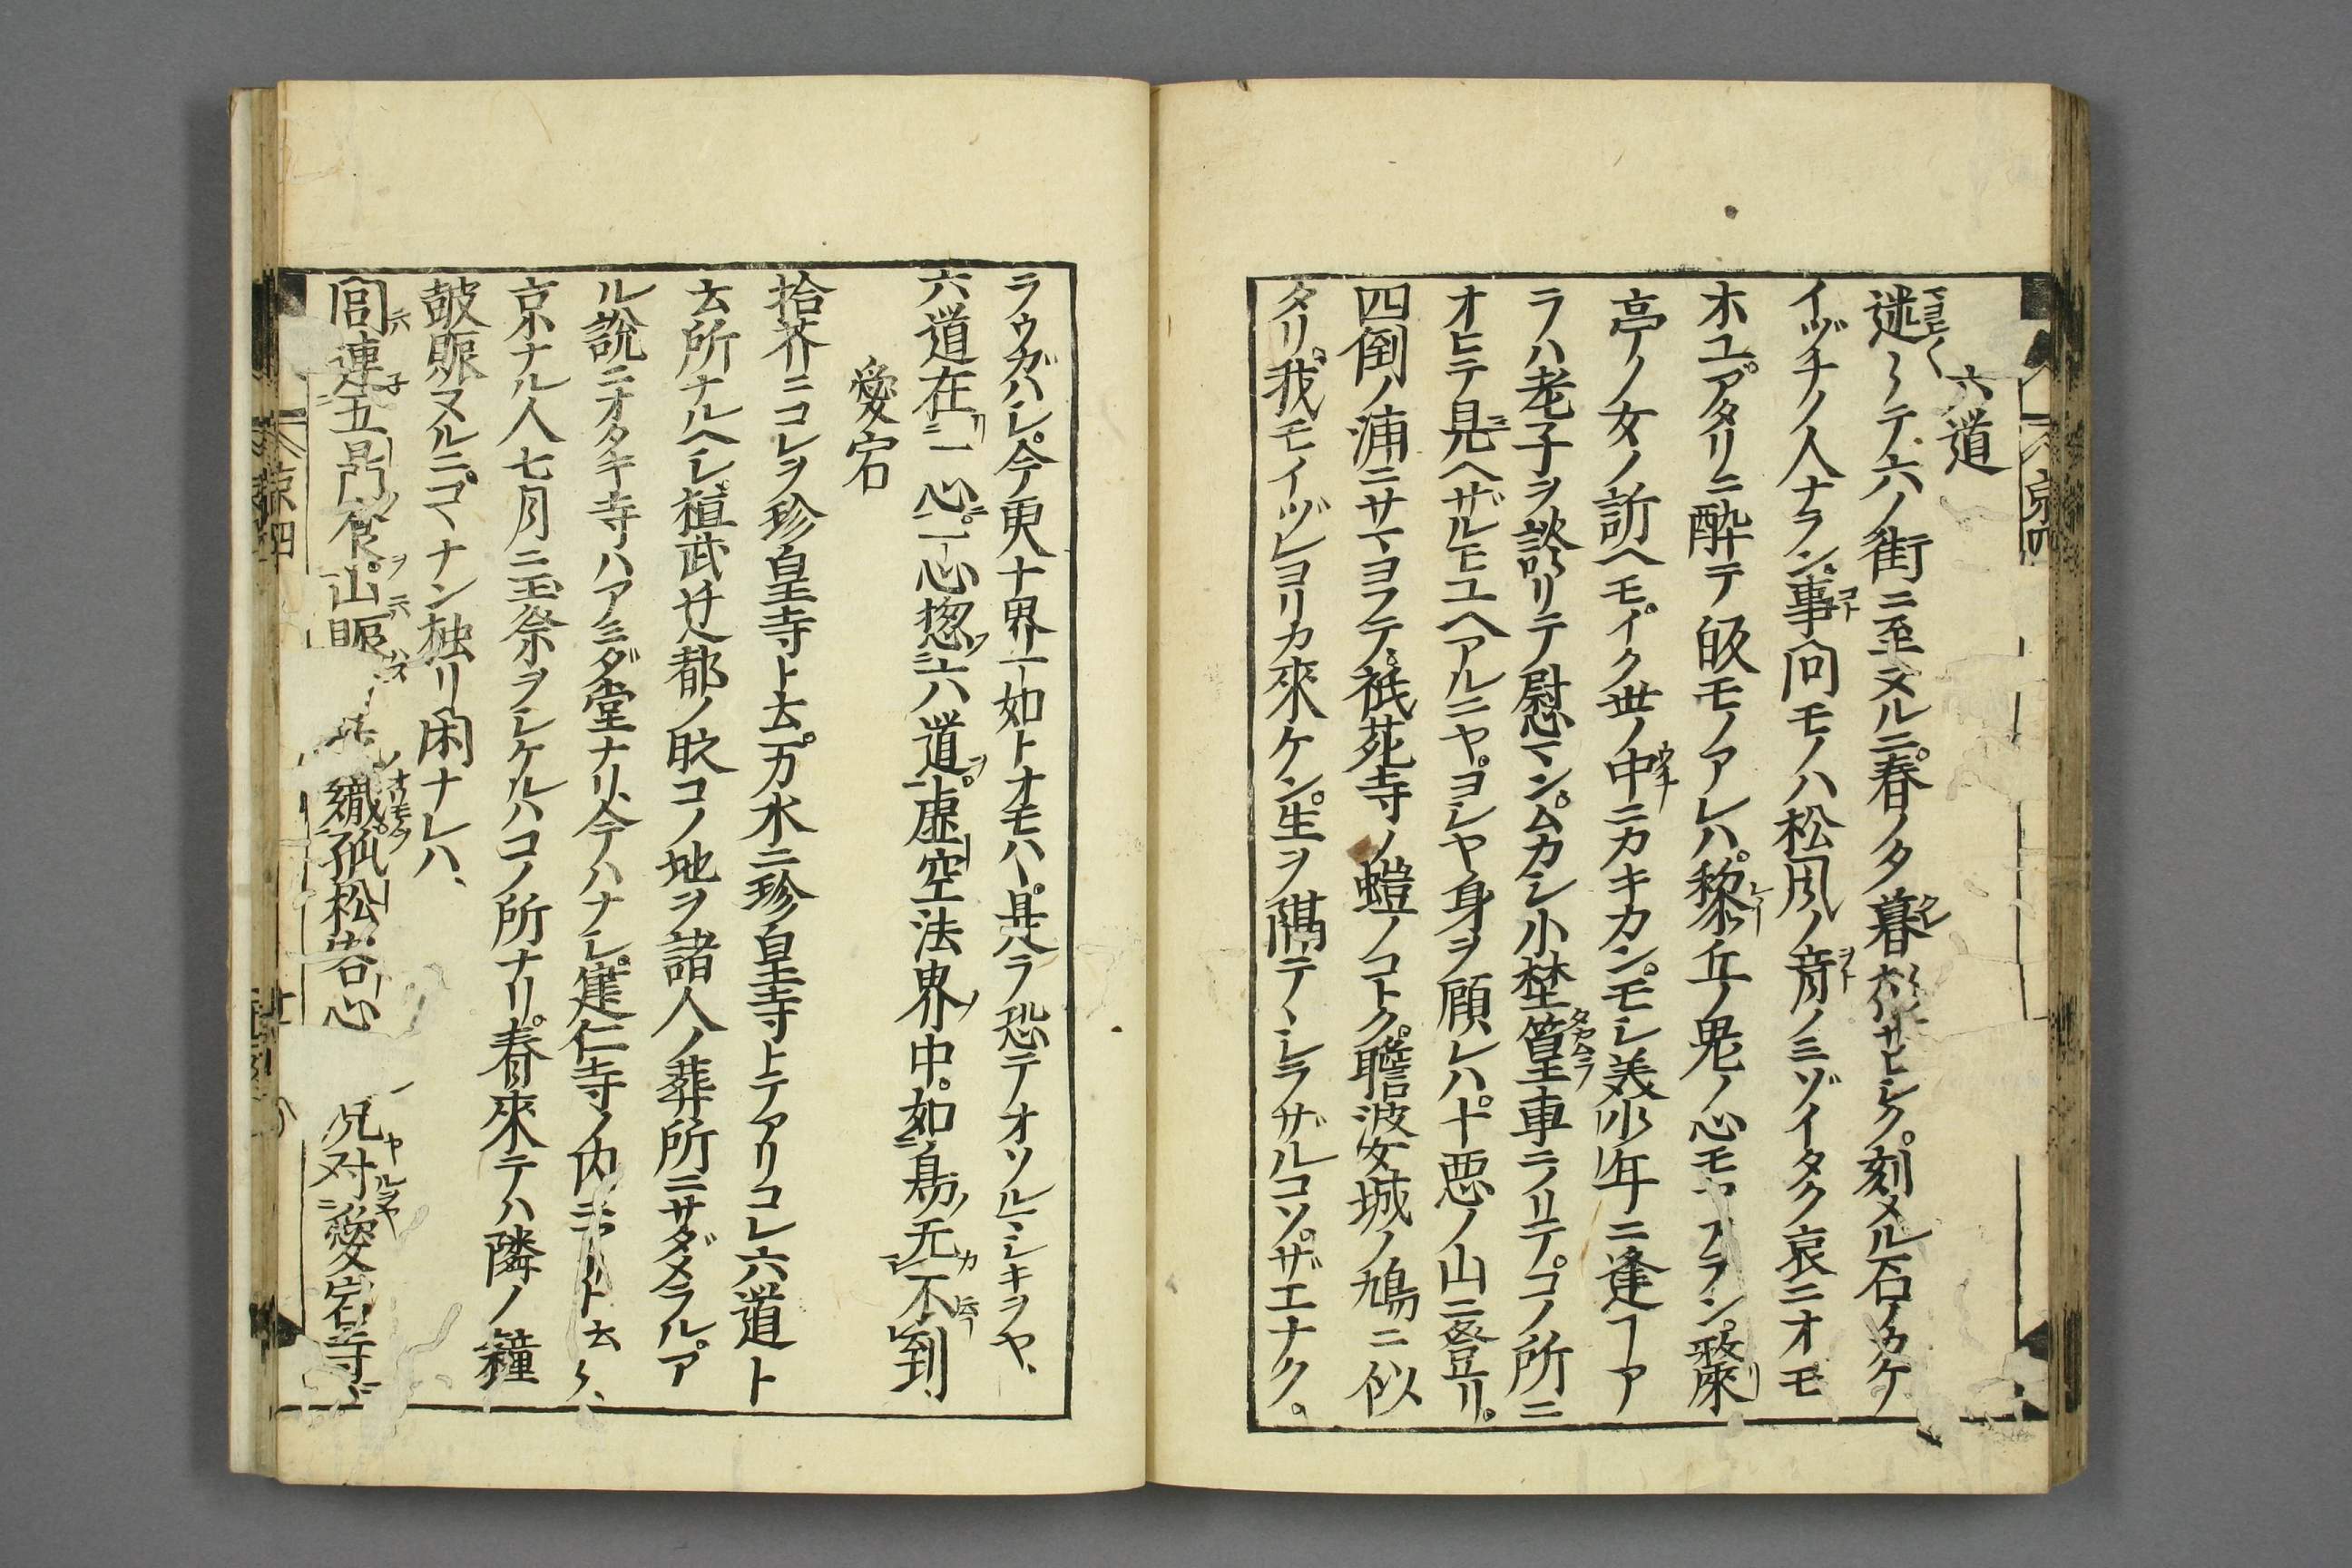 六道
迷〳〵テ六ノ街ニ至ヌルニ。春ノタ暮サビシク。刻メル石ノカケ
イヅチノ人ナラン。事問モノハ松風ノ音ノミゾイタク哀ニオモ
ホユ。アタリニ酔テ皈モノアレハ。黎丘ノ鬼ノ心モ フラン。
亭ノ女ノ訢ヘモ。イク世ノ中ニカキカン。モシ美少年ニ逢ヿア
ラハ老子ヲ談リテ慰マン。ムカシ小埜篁車ニヲリテ。コノ所ニ
オヒテ見ヘザルモユヘアルニヤ。ヨシヤ身ヲ顧レハ。十悪ノ山ニ登リ。
四倒ノ浦ニサマヨフテ。祇苑寺ノ螘ノコトク。瞻波女城ノ鳩ニ似
タリ。我モイヅレヨリカ來ケン。生ヲ隔テヽシラザルコソ。ザエナク。
ラウガハシ。今更十界一如トオモハヽ。是ラ恐テオソルヽシキヲヤ、
六道在一心。一心惣六道。虚空法界中。如鳥无不到、
愛宕
拾芥ニコレヲ珍皇寺ト云。万水ニ珍皇寺トテアリコレ六道ト
云所ナルヘシ。植武 都ノ コノ地ヲ諸人ノ葬所ニサダメラル。ア
ル説ニオタキ寺ハアミダ堂ナリ、今ハナシ。建仁寺ノ内ニアリト云〳〵、
京ナル人七月ニ玉祭ヲシケルハコノ所ナリ。春來テハ隣ノ鐘
皷賑ヌルニ。コヽナン独リ閑ナレハ、
同連五 食。山賑 織。孤松岩心 况対愛宕寺
京四